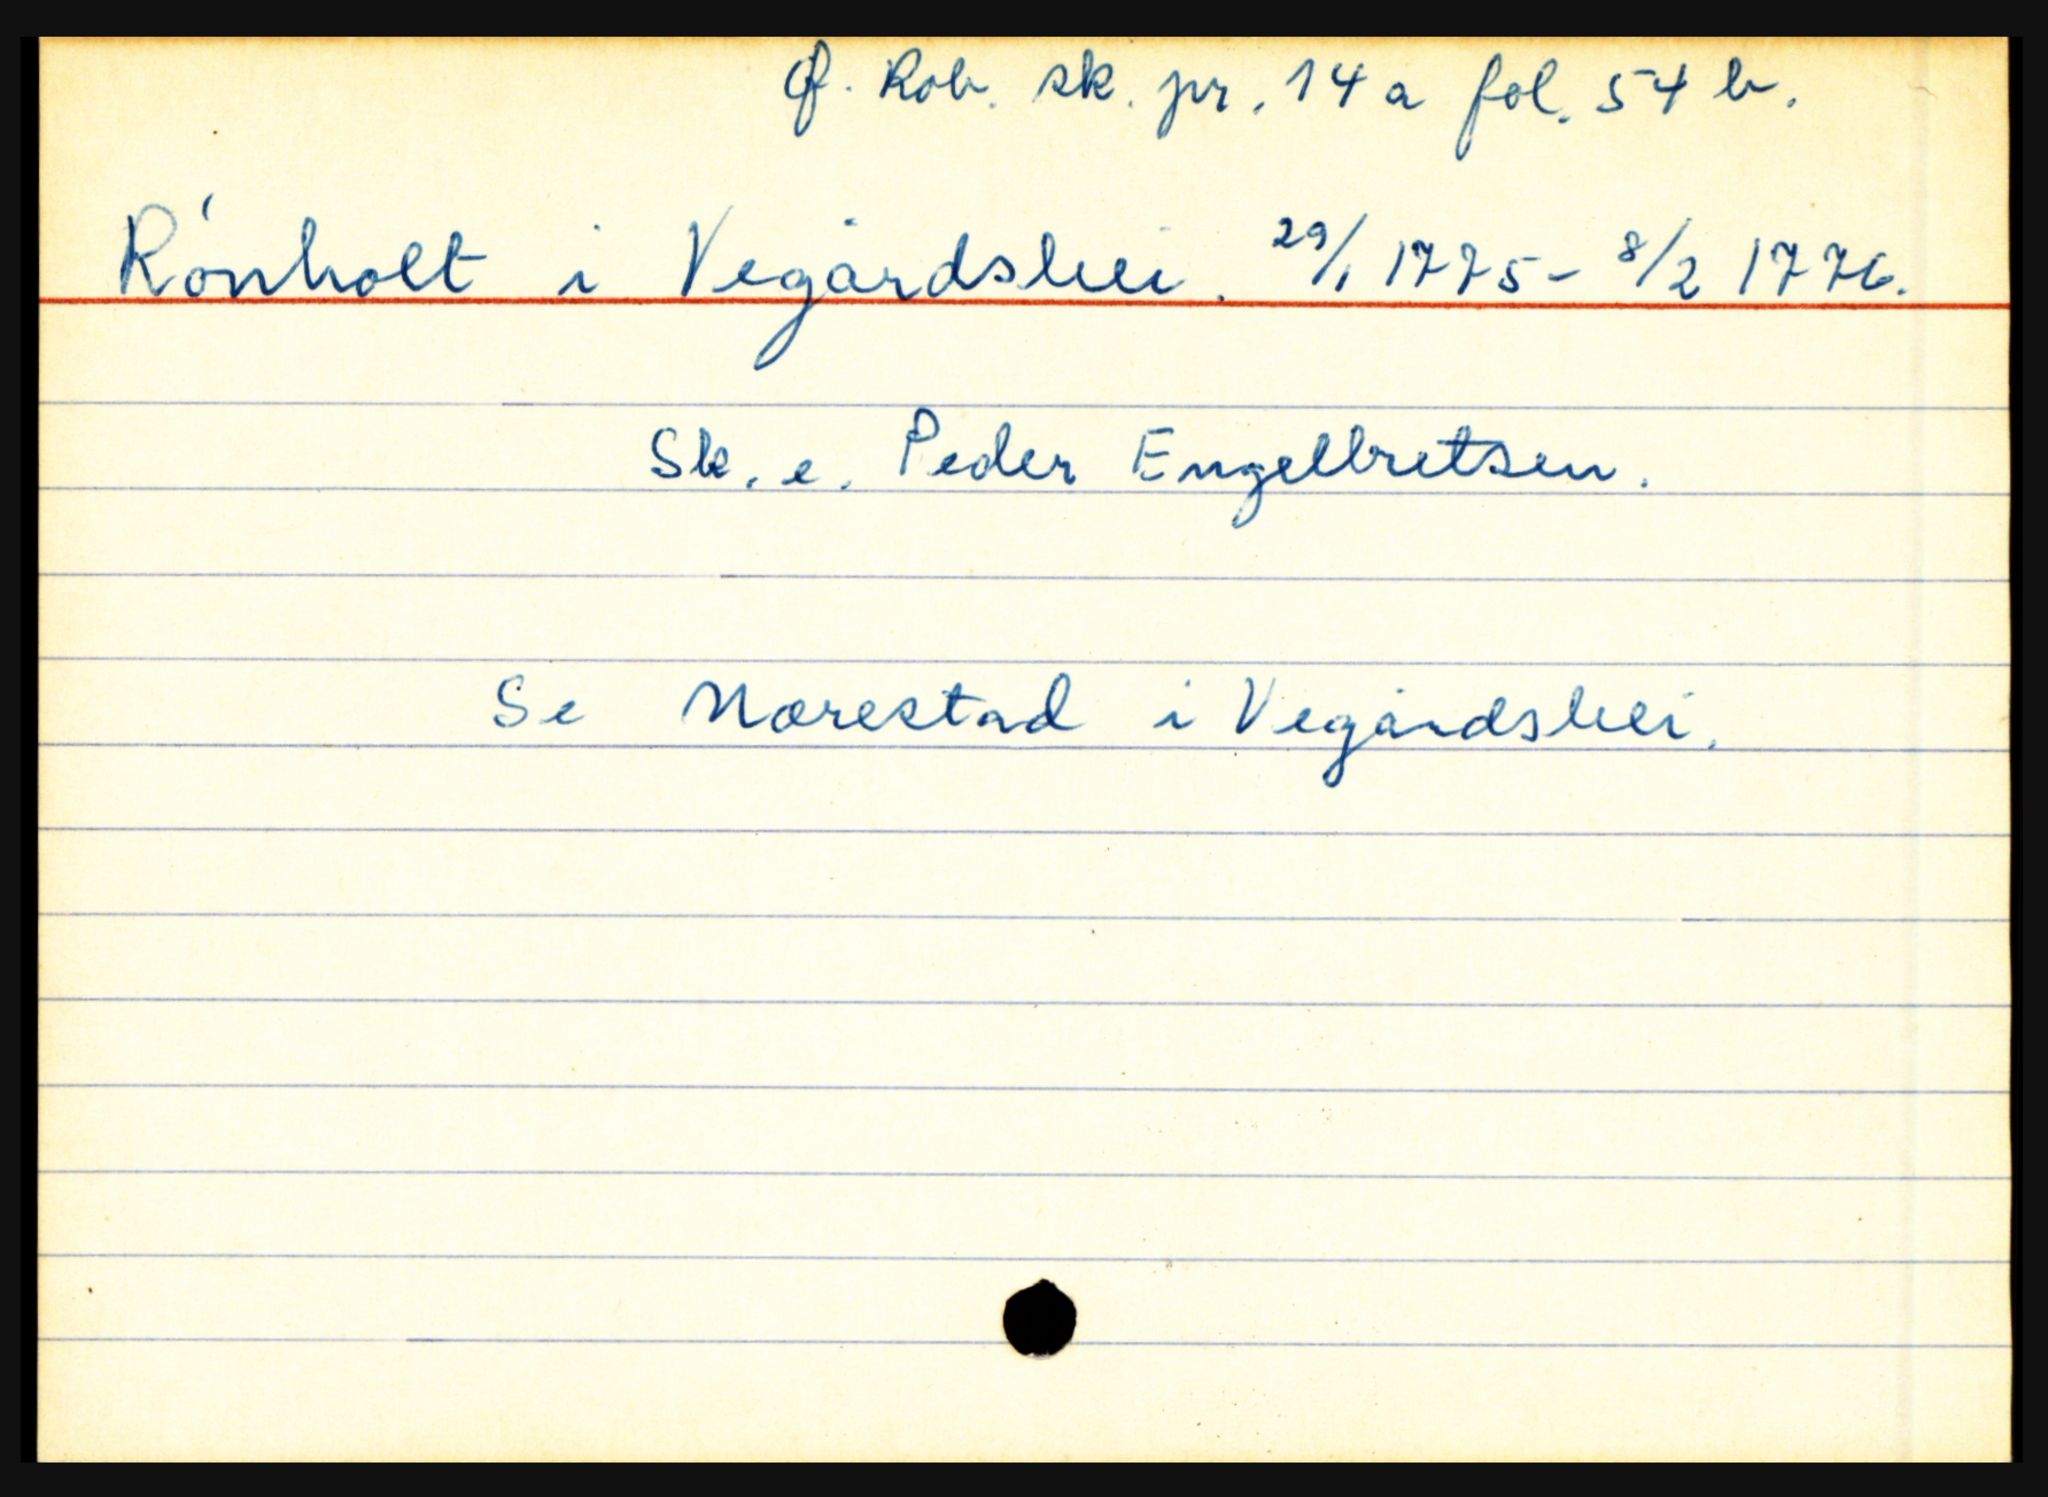 Ø. Rob. sk. pr. 14 a fol. 54 b.
Rønholt i Vegårdshei. 29/1 1775 - 8/2 1776.
Sk. e. Peder Engelbretsen.
Se Nærestad i Vegårdshei.